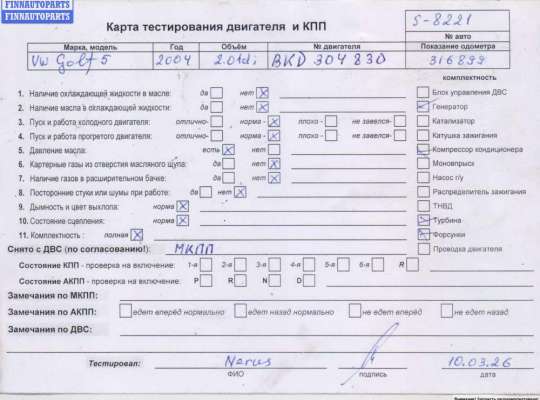 FINNAUTOPARTS
FINNAUTOPARTS
Карта тестирования двигателя и КПП
S-8221
№ авто
Марка, модель Год Объём № двигателя Показание одометра
VW Golf 5 2004 2.0tdi BKD 304830 316899
комплектность
1. Наличие охлаждающей жидкости в масле: да нет
Блок управления ДВС
2. Наличие масла в охлаждающей жидкости: да нет
Генератор
3. Пуск и работа холодного двигателя: отлично- норма - плохо - не завелся-
Катализатор
4. Пуск и работа прогретого двигателя: отлично- норма - плохо - не завелся-
Катушка зажигания
5. Давление масла: есть нет
Компрессор кондиционера
6. Картерные газы из отверстия масляного щупа: да нет
Моновпрыск
7. Наличие газов в расширительном бачке: да нет
Насос г/у
8. Посторонние стуки или шумы при работе: да нет
Распределитель зажигания
9. Дымность и цвет выхлопа: норма
ТНВД
10. Состояние сцепления: норма
Турбина
11. Комплектность : полная
Форсунки
Снято с ДВС (по согласованию!): МКПП
Проводка двигателя
Состояние КПП - проверка на включение: 1-я 2-я 3-я 4-я 5-я 6-я R
Состояние АКПП - проверка на включение: P R N D
Замечания по МКПП:
Замечания по АКПП: едет вперёд нормально едет назад нормально не едет вперёд не едет назад
Замечания по ДВС:
Тестировал: Nerus 10.03.26
ФИО подпись дата